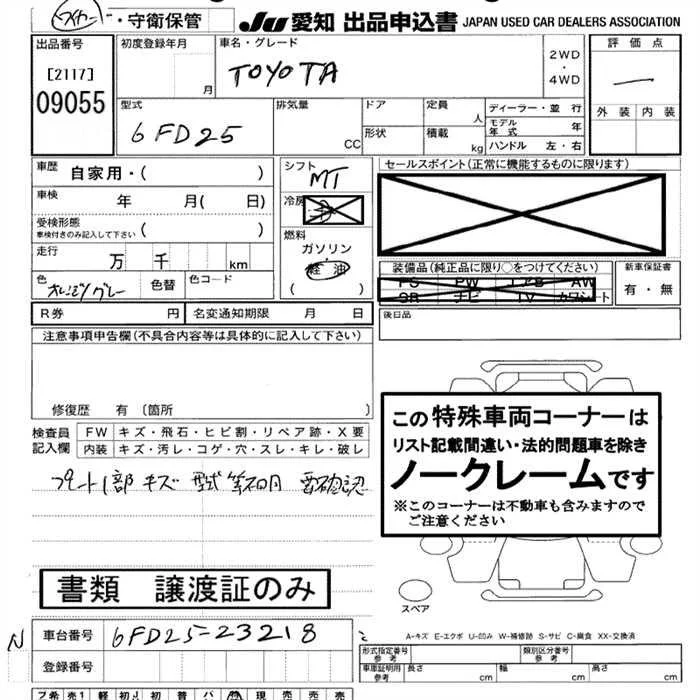 ・守衛保管
JU 愛知 出品申込書 JAPAN USED CAR DEALERS ASSOCIATION
出品番号
[2117]
09055
初度登録年月
月
車名・グレード
TOYOTA
2WD
・
4WD
評価点
外装 内装
型式
6FD25
排気量
CC
ドア
形状
定員
人
積載
kg
ディーラー・並 行
モデル
年式
年
ハンドル 左・右
車歴
自家用・( )
車検
年 月( 日)
受検形態
車検付きのみ記入して下さい ( )
走行
万 千 km
色
色替
色コード
シフト
MT
冷房
燃料
ガソリン
・
軽油
( )
セールスポイント(正常に機能するものに限ります)
装備品(純正品に限り○をつけてください)
PS PW エアB AW
SR ナビ TV カワシート
新車保証書
有・無
後日品
R券 円 名変通知期限 月 日
注意事項申告欄(不具合内容等は具体的に記入して下さい)
修復歴 有 〔箇所 〕
検査員
記入欄
FW キズ・飛石・ヒビ割・リペア跡・X要
内装 キズ・汚レ・コゲ・穴・スレ・キレ・破レ
キズ 型式等不明 要確認
この特殊車両コーナーは
リスト記載間違い・法的問題車を除き
ノークレームです
※このコーナーは不動車も含みますので
ご注意ください
スペア
書類 譲渡証のみ
A-キズ E-エクボ U-凹み W-補修跡 S-サビ C-腐食 XX-交換済
N 車台番号 6FD25-23218
登録番号
型式指定番号
参考
類別区分番号
参考
車車証明用
参考
長さ cm 幅 cm 高さ cm